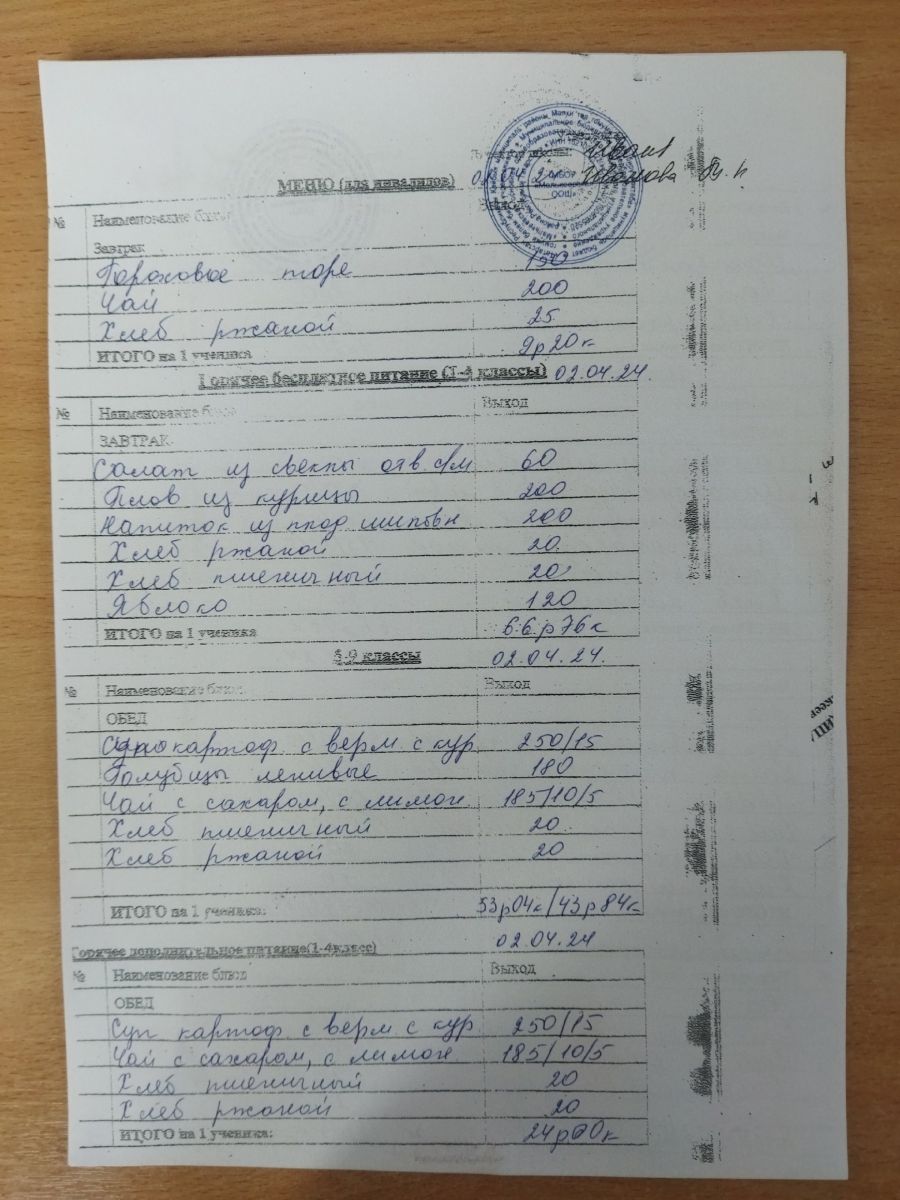 МЕНЮ (для инвалидов) 02.04.2
Иванова
№ Наименование блюд
Завтрак
Гороховое пюре 150
Чай 200
Хлеб ржаной 25
ИТОГО на 1 ученика 9р20к
Горячее бесплатное питание (1-4 классы) 02.04.24.
№ Наименование блюд Выход
ЗАВТРАК
Салат из свеклы отв. с/м 60
Плов из курицы 200
Напиток из плод шиповн 200
Хлеб ржаной 20
Хлеб пшеничный 20
Яблоко 120
ИТОГО на 1 ученика 66р76к
5-9 классы 02.04.24.
№ Наименование блюд Выход
ОБЕД
картоф. с верм с кур 250/15
Голубцы ленивые 180
Чай с сахаром, с лимон 185/10/5
Хлеб пшеничный 20
Хлеб ржаной 20
ИТОГО на 1 ученика: 53р04к/43р84к
02.04.24
Горячее дополнительное питание(1-4класс)
№ Наименование блюд Выход
ОБЕД
Суп картоф. с верм с кур 250/15
Чай с сахаром, с лимон 185/10/5
Хлеб пшеничный 20
Хлеб ржаной 20
ИТОГО на 1 ученика: